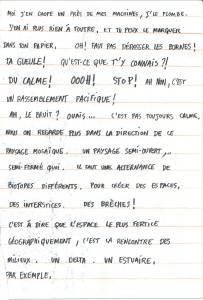 MOI J'EN CHOPE UN PRÈS DE MES MACHINES, J'LE PLOMBE.
J'EN AI PLUS RIEN À FOUTRE, ET TU PEUX LE MARQUER
DANS SON PAPIER. OH! FAUT PAS DÉPASSER LES BORNES!
TA GUEULE! QU'EST-CE QUE T'Y CONNAIS?!
DU CALME! OOOH! STOP! AH NON, C'EST
UN RASSEMBLEMENT PACIFIQUE!
AH, LE BRUIT? OUAIS... C'EST PAS TOUJOURS CALME.
NOUS ON REGARDE PLUS DANS LA DIRECTION DE CE
PAYSAGE MOSAÏQUE. UN PAYSAGE SEMI-OUVERT,...
SEMI-FERMÉ QUOI. IL FAUT UNE ALTERNANCE DE
BIOTOPES DIFFÉRENTS. POUR CRÉER DES ESPACES,
DES INTERSTICES. DES BRÈCHES!
C'EST À DIRE QUE L'ESPACE LE PLUS FERTILE
GÉOGRAPHIQUEMENT, C'EST LA RENCONTRE DES
MILIEUX. UN DELTA. UN ESTUAIRE,
PAR EXEMPLE.